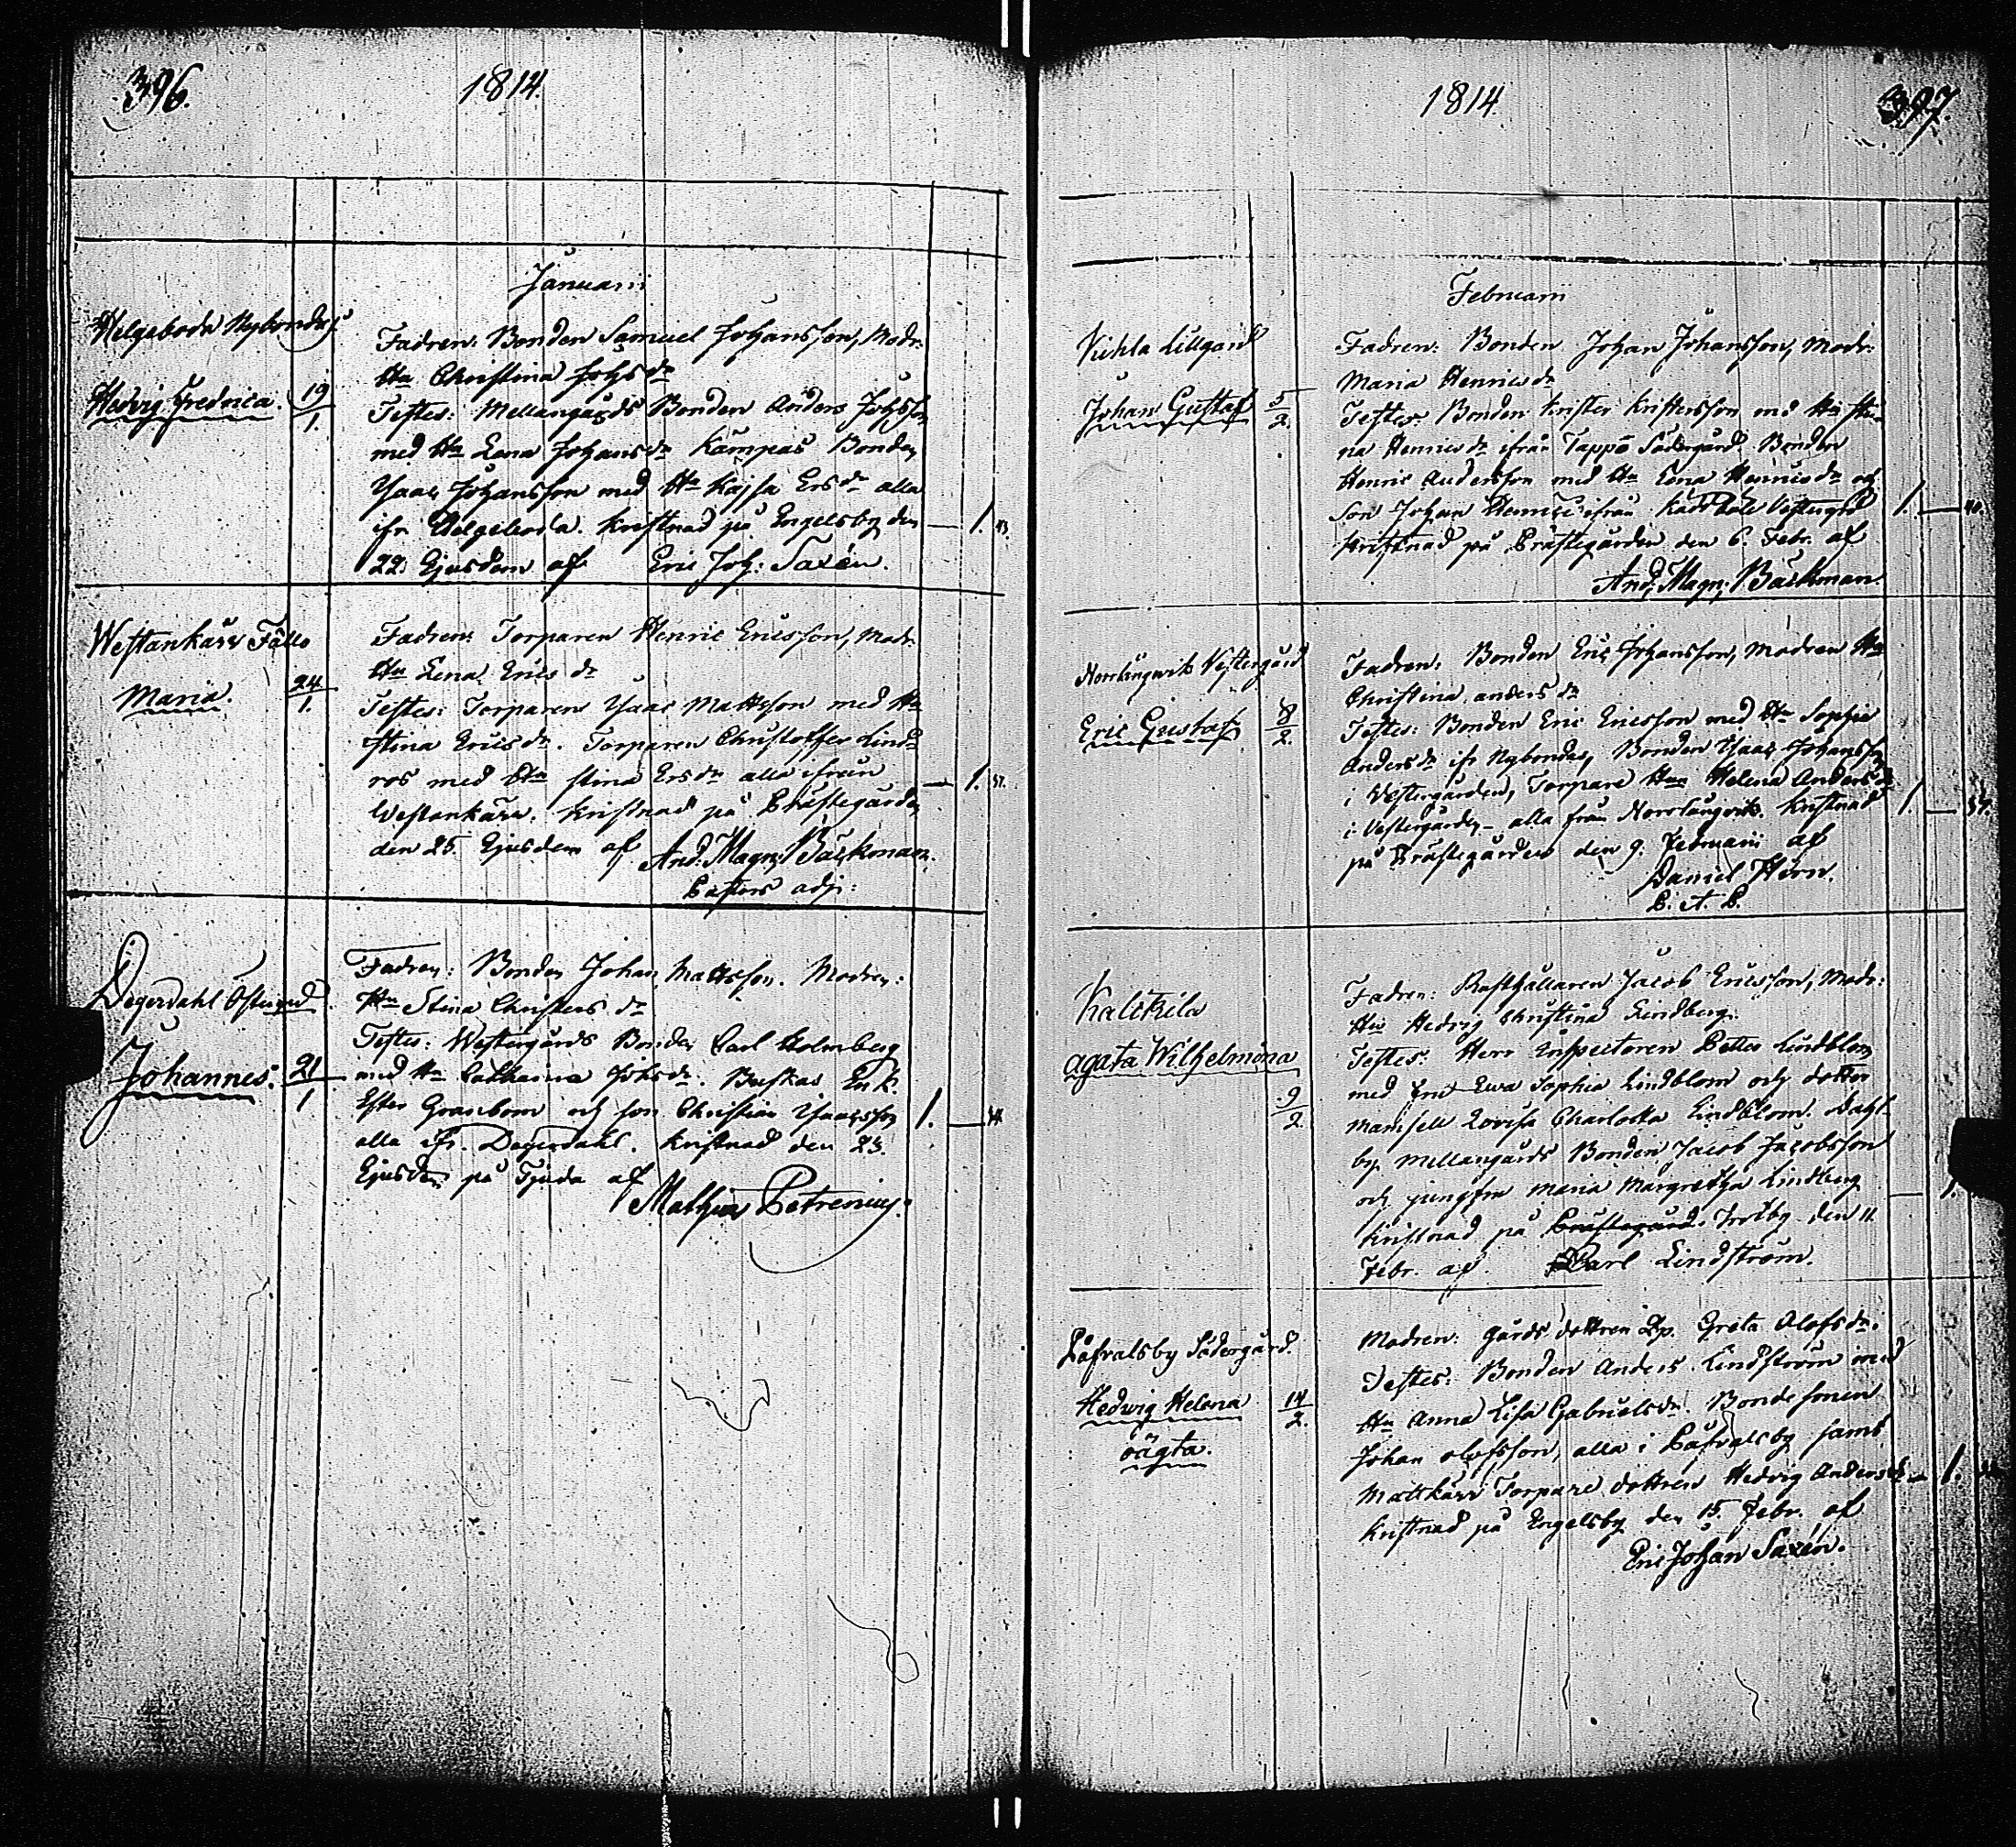 396.
1814.
Januarii
Helgeboda Nybondas
Hedvig Fredrica. 19/1.
Fadren: Bonden Samuel Johansson, Modr:
Hu Christina Johsdr
Testes: Mellangårds Bonden Anders Johsson
med Hu Lena Johansdr Kämpas Bonden
Isaac Johansson med Hu Kajsa Ersdr alla
ifr Helgeboda. Kristnad på Engelsby den
22. Ejusdem af Eric Joh: Saxén.
1. 43.
Westankärr Fälls
Maria. 24/1.
Fadren: Torparen Henric Ericsson, Modr.
Hu Lena Ericsdr
Testes: Torparen Isaac Mattsson med Hu
Stina Ericsdr. Torparen Christoffer Lind-
ros med Hu Stina Ersdr alla ifrån
Westankärr. Kristnad på Prästegården
den 25. Ejusdem af And. Magn: Bäckman.
Pastors adj:
1. 37.
Degerdahl Östergrd
Johannes. 21/1
Fadren: Bonden Johan Mattsson. Modren:
Hu Stina Christersdr
Testes: Westergårds Bonden Carl Holmberg
med Hu Catharina Johsdr. Buskas Enk.
Ester Granbom och son Christian Isaacsson
alla ifr. Degerdahl. Kristnad den 23.
Ejusdem på Tjuda af
Mathias Petrenius.
1.
1814
397.
Februarii
Vihla Lillgård
Johan Gustaf 5/2.
Fadren: Bonden Johan Johansson, Modr:
Maria Henricsdr
Testes: Bonden Krister Kristersson med Hu Sti-
na Henricsdr ifrån Tappo Södergård. Bonden
Henric Andersson med Hu Lena Henricsdr och
Son Johan Henrics ifrån Vestergrd
Kristnad på Prästegården den 6. Febr. af
And: Magn: Bäckman.
1. 40.
Norrlångvik Vestergård
Eric Gustaf 8/2.
Fadren: Bonden Eric Johansson, Modren Hu
Christina Andersdr
Testes: Bonden Eric Ericsson med Hu Sophia
Andersdr ifr Nybondas, Bonden Isaac Johansson
i Vestergården, Torpare Hun Helena Andersdr
i Vestergården – alla från Norrlångvik. Kristnad
på Prästegården den 9. Februarii af
Daniel Hörn.
P. A. P.
1.
Kalkila
Agata Wilhelmina
9/2
Fadren: Rusthållaren Jacob Ericsson, Modr:
Hu Hedvig Christina Lindberg.
Testes: Herr Inspectoren Petter Lindblom
med Fru Ewa Sophia Lindblom och dotter
Mamsell Lovisa Charlotta Lindblom. Dahl-
by Mellangårds Bonden Jacob Jacobsson
och jungfru Maria Margretha Lindberg
Kristnad på Prästegård. Trotby den 11.
Febr. af Carl Lindström.
1.
Påfvalsby Södergård.
Hedwig Helena 14/2.
oägta.
Modren: Gårds dottren Greta Olofsdr.
Testes: Bonden Anders Lindström med
Hu Anna Lisa Gabrielsdr. Bondesonen
Johan Olofsson, alla i Påfvalsby samt
Mattkärr Torpare dottren Hedvig Andersdr
Kristnad på Engelsby den 15. Febr. af
Eric Johan Saxén.
1.